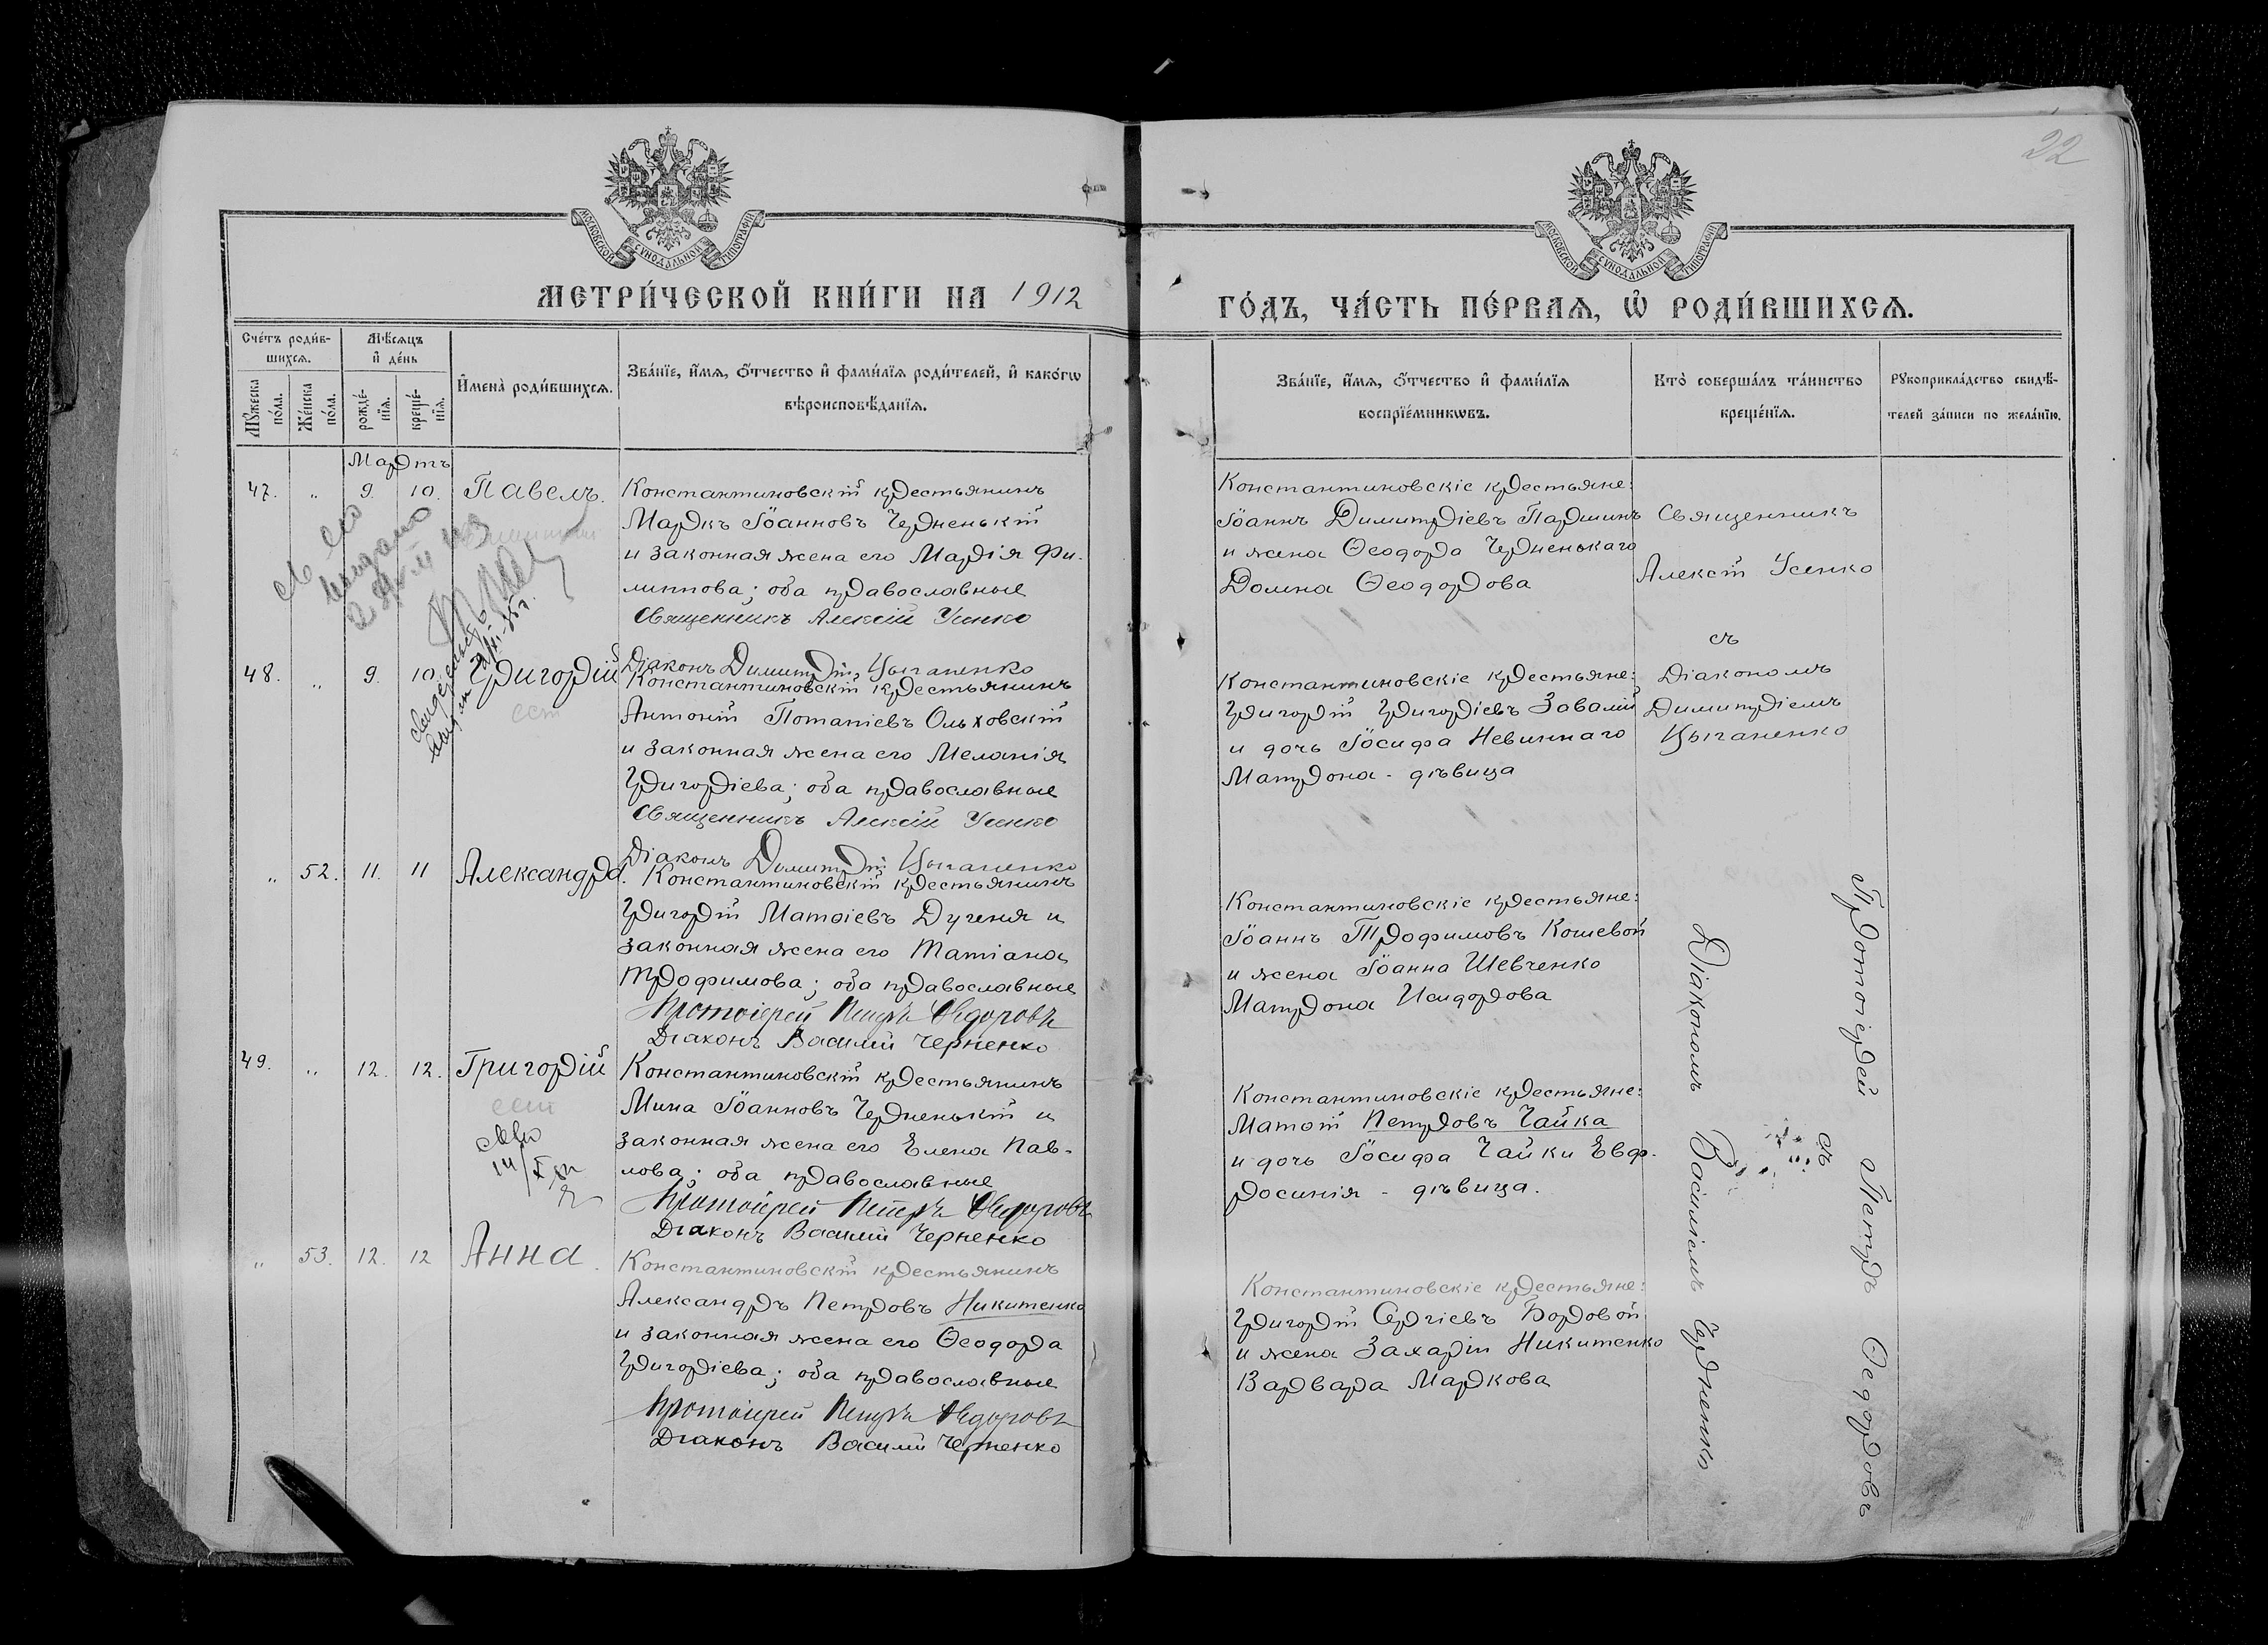 22
МОСКОВСКОЙ СѴНОДАЛЬНОЙ ТИПОГРАФІИ
МОСКОВСКОЙ СѴНОДАЛЬНОЙ ТИПОГРАФІИ
МЕТРИ́ЧЕСКОЙ КНИ́ГИ НА 1912
ГО́ДЪ, ЧА́СТЬ ПЕ́РВАѦ, Ѡ҆ РОДИ́ВШИХСѦ.
Сче́тъ роди́в-
шихсѧ.
Мѣ́сѧцъ
и҆ де́нь
Мꙋ́жеска
по́ла.
Же́нска
по́ла.
рожде́-
нїѧ.
креще́-
нїѧ.
И҆мена̀ роди́вшихсѧ.
Зва́нїе, и҆́мѧ, ѻ҆́тчество и҆ фами́лїѧ роди́телей, и҆ како́гѡ
вѣроисповѣ́данїѧ.
Зва́нїе, и҆́мѧ, ѻ҆́тчество и҆ фами́лїѧ
воспрїе́мникѡвъ.
Кто̀ соверша́лъ та́инство
креще́нїѧ.
Рꙋкоприкла́дство свидѣ́-
телей за́писи по жела́нїю.
Мартъ
47. „ 9. 10. Павелъ.
Константиновскій крестьянинъ
Маркъ Іоанновъ Черненькій
и законная жена его Марія Фи-
липпова; оба православные
Священникъ Алексій Усенко
Діаконъ Димитрій Цыганенко
Константиновскіе крестьяне:
Іоаннъ Димитріевъ Паршинъ
и жена Ѳеодора Черненькаго
Домна Ѳеодорова
Священникъ
Алексій Усенко
съ
Діакономъ
Димитріемъ
Цыганенко
48. „ 9. 10. Григорій
Константиновскій крестьянинъ
Антоній Потапіевъ Ольховскій
и законная жена его Меланія
Григоріева; оба православные
Священникъ Алексій Усенко
Діаконъ Димитрій Цыганенко
Константиновскіе крестьяне:
Григорій Григоріевъ Завалій
и дочь Іосифа Невиннаго
Матрона - дѣвица
„ 52. 11. 11 Александра.
Константиновскій крестьянинъ
Григорій Матѳіевъ Дугеня и
законная жена его Татіана
Трофимова; оба православные
Протоіерей Петръ Ѳедоровъ
Діаконъ Василій Черненко
Константиновскіе крестьяне:
Іоаннъ Трофимовъ Кошевой
и жена Іоанна Шевченко
Матрона Исидорова
Протоіерей Петръ Ѳедоровъ
съ
Діакономъ Василіемъ Черненко
49. „ 12. 12. Григорій
Константиновскій крестьянинъ
Мина Іоанновъ Черненькій и
законная жена его Елена Пав-
лова; оба православные
Протоіерей Петръ Ѳедоровъ
Діаконъ Василій Черненко
Константиновскіе крестьяне:
Матѳій Петровъ Чайка
и дочь Іосифа Чайки Евф-
росинія - дѣвица.
„ 53. 12. 12 Анна.
Константиновскій крестьянинъ
Александръ Петровъ Никитенко
и законная жена его Ѳеодора
Григоріева; оба православные
Протоіерей Петръ Ѳедоровъ
Діаконъ Василій Черненко
Константиновскіе крестьяне:
Григорій Сергіевъ Бордовой
и жена Захарія Никитенко
Варвара Маркова